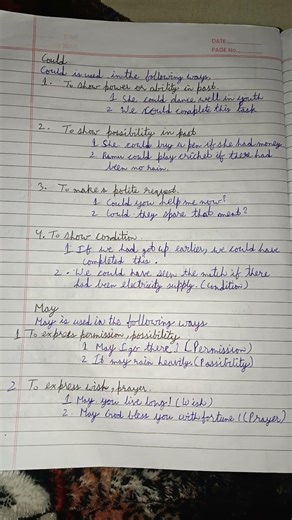 DATE
PAGE No.
Could
Could is used in the following ways.
1. To show power or ability in past.
1 She could dance well in youth
2 We could complete this task
2. To show possibility in past
1 She could buy a pen if she had money
2 Ramu could play cricket if there had
been no rain.
3. To make a polite request.
1 Could you help me now?
2 Could they spare that?
4. To show condition
1 If we had got up earlier, we could have
completed this.
2. We could have seen the match if there
had been electricity supply. (Condition)
May
May is used in the following ways
1 To express permission, possibility.
1 May I go there? (Permission)
2 It may rain heavily. (Possibility)
2 To express wish, prayer.
1 May you live long! (Wish)
2. May God bless you with fortune! (Prayer)